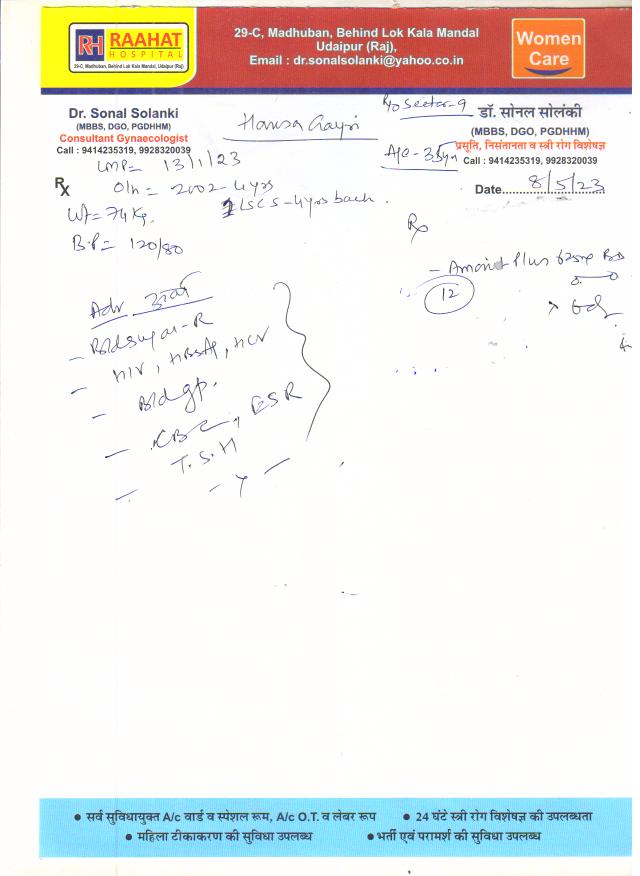 RH RAAHAT
HOSPITAL
29-C, Madhuban, Behind Lok Kala Mandal, Udaipur (Raj)
29-C, Madhuban, Behind Lok Kala Mandal
Udaipur (Raj),
Email : dr.sonalsolanki@yahoo.co.in
Women
Care
Dr. Sonal Solanki
(MBBS, DGO, PGDHHM)
Consultant Gynaecologist
Call : 9414235319, 9928320039
Hansa Gayri
R/O Sector-9
डॉ. सोनल सोलंकी
(MBBS, DGO, PGDHHM)
प्रसूति, निसंतानता व स्त्री रोग विशेषज्ञ
Call : 9414235319, 9928320039
Date 8/5/23
LMP= 13/1/23
Rx O/H= 2002-4yrs
1 LSCS-4yrs back.
Wt= 74 Kg.
B.P= 120/80
Rx
- Plus 625mg BD
12
Adv
- Bldsugar-R
- HIV, HBsAg, HCV
- Bldgp.
- CBC, ESR
- T.S.H
सर्व सुविधायुक्त A/c वार्ड व स्पेशल रूम, A/c O.T. व लेबर रूप
24 घंटे स्त्री रोग विशेषज्ञ की उपलब्धता
महिला टीकाकरण की सुविधा उपलब्ध
भर्ती एवं परामर्श की सुविधा उपलब्ध